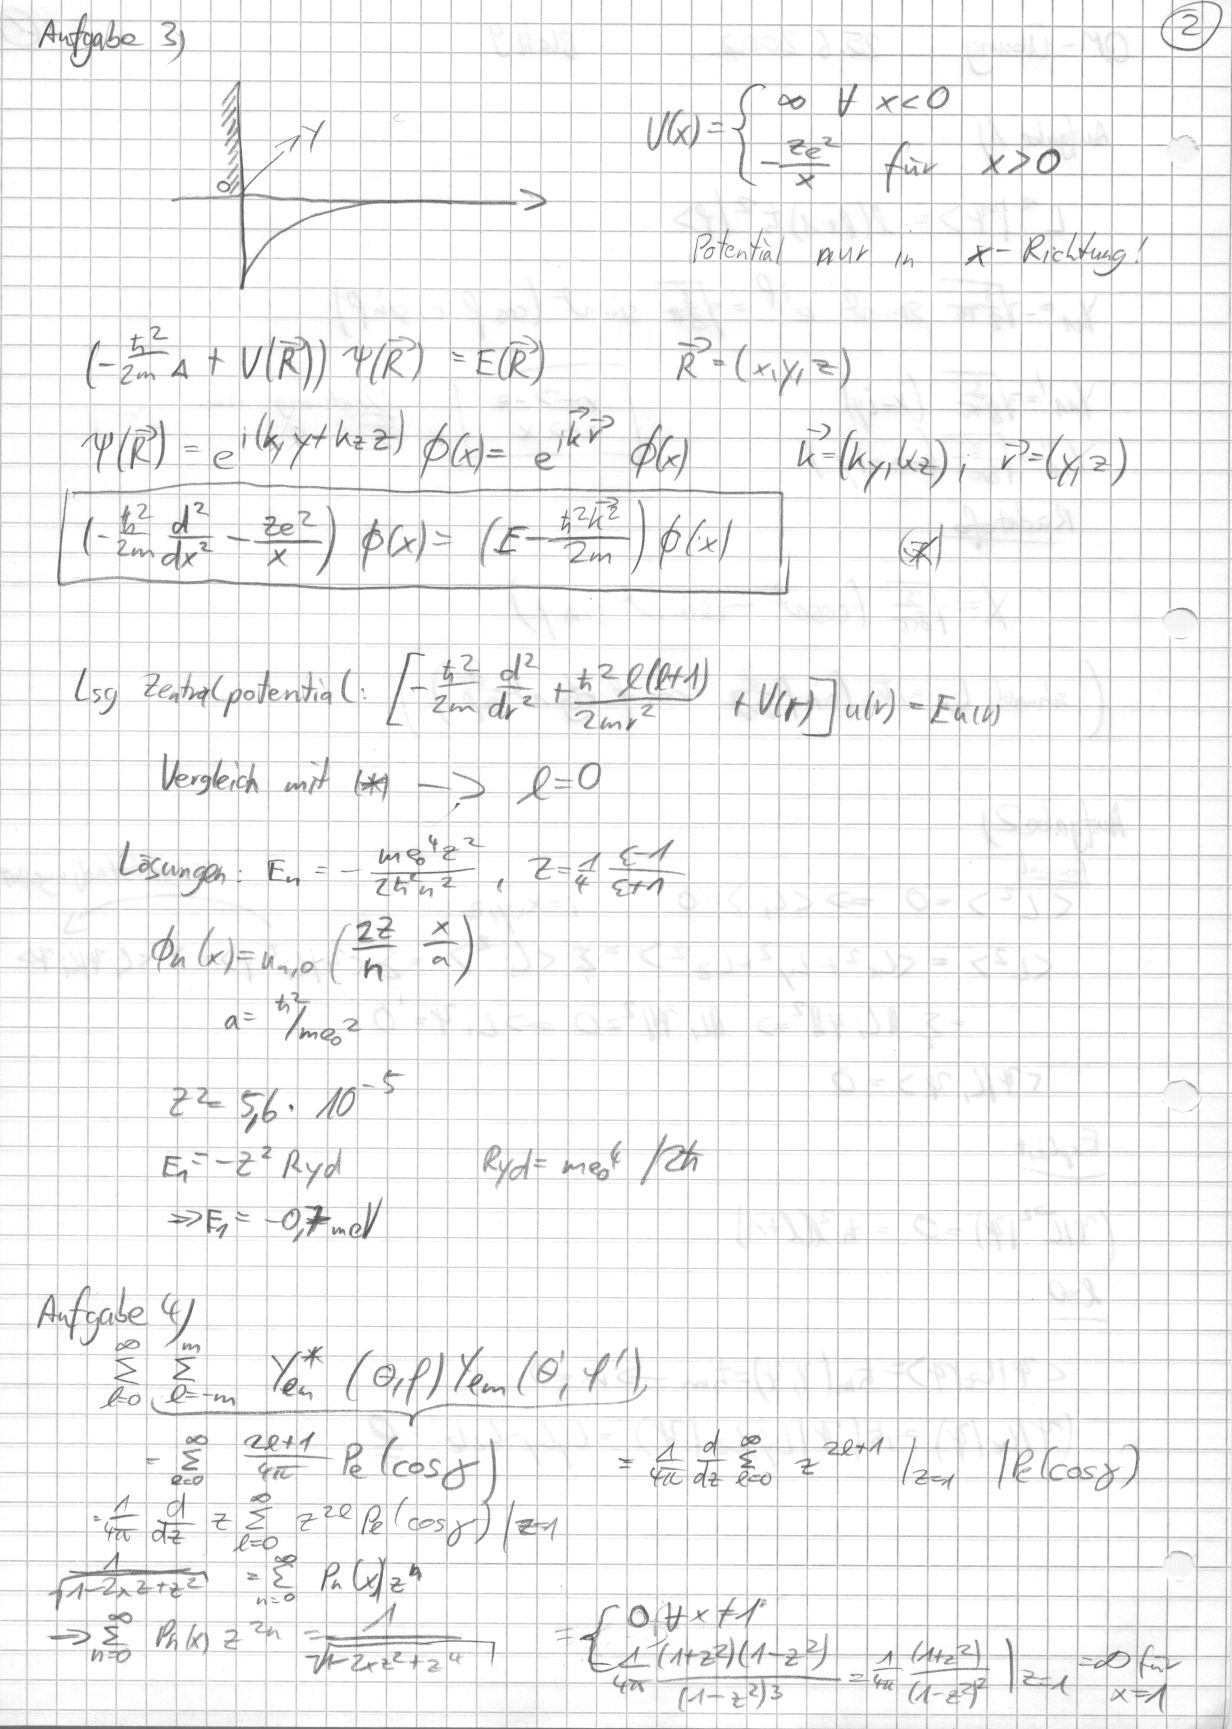 2
Aufgabe 3)
Y
0
V(x) = { ∞ ∀ x<0
-Ze²/x für x>0
Potential nur in x-Richtung!
(-ħ²/2m Δ + V(R⃗)) Ψ(R⃗) = E(R⃗) R⃗ = (x,y,z)
Ψ(R⃗) = e^{i(k_y y + k_z z)} ϕ(x) = e^{i k⃗ r⃗} ϕ(x) k⃗ = (k_y, k_z); r⃗ = (y,z)
(-ħ²/2m d²/dx² - Ze²/x) ϕ(x) = (E - ħ²k⃗²/2m) ϕ(x) (*)
Lsg Zentralpotential: [-ħ²/2m d²/dr² + ħ² l(l+1)/2mr² + V(r)] u(r) = E u(r)
Vergleich mit (*) -> l=0
Lösungen: E_n = - m e₀⁴ z²/2ħ²n² , Z = 1/4 ε-1/ε+1
ϕ_n(x) = u_{n,0} (2Z/n x/a)
a = ħ²/me₀²
Z² = 5,6 · 10^{-5}
E_1 = -Z² Ryd Ryd = me₀⁴ /2ħ
=> E_1 = -0,7 meV
Aufgabe 4)
∑_{l=0}^{∞} ∑_{l=-m}^{m} Y_{lm}^* (θ,φ) Y_{lm} (θ', φ')
= ∑_{l=0}^{∞} 2l+1/4π P_l (cosγ) = 1/4π d/dz ∑_{l=0}^{∞} z^{2l+1} |_{z=1} | P_l (cosγ)
= 1/4π d/dz z ∑_{l=0}^{∞} z^{2l} P_l (cosγ) |_{z=1}
1/√(1-2xz+z²) = ∑_{n=0}^{∞} P_n(x) z^n
-> ∑_{n=0}^{∞} P_n(x) z^{2n} = 1/√(1-2xz²+z⁴) = { 0 ∀ x≠1
1/4π (1+z²)(1-z²)/(1-z²)³ = 1/4π (1+z²)/(1-z²)² |_{z=1} = ∞ für x=1